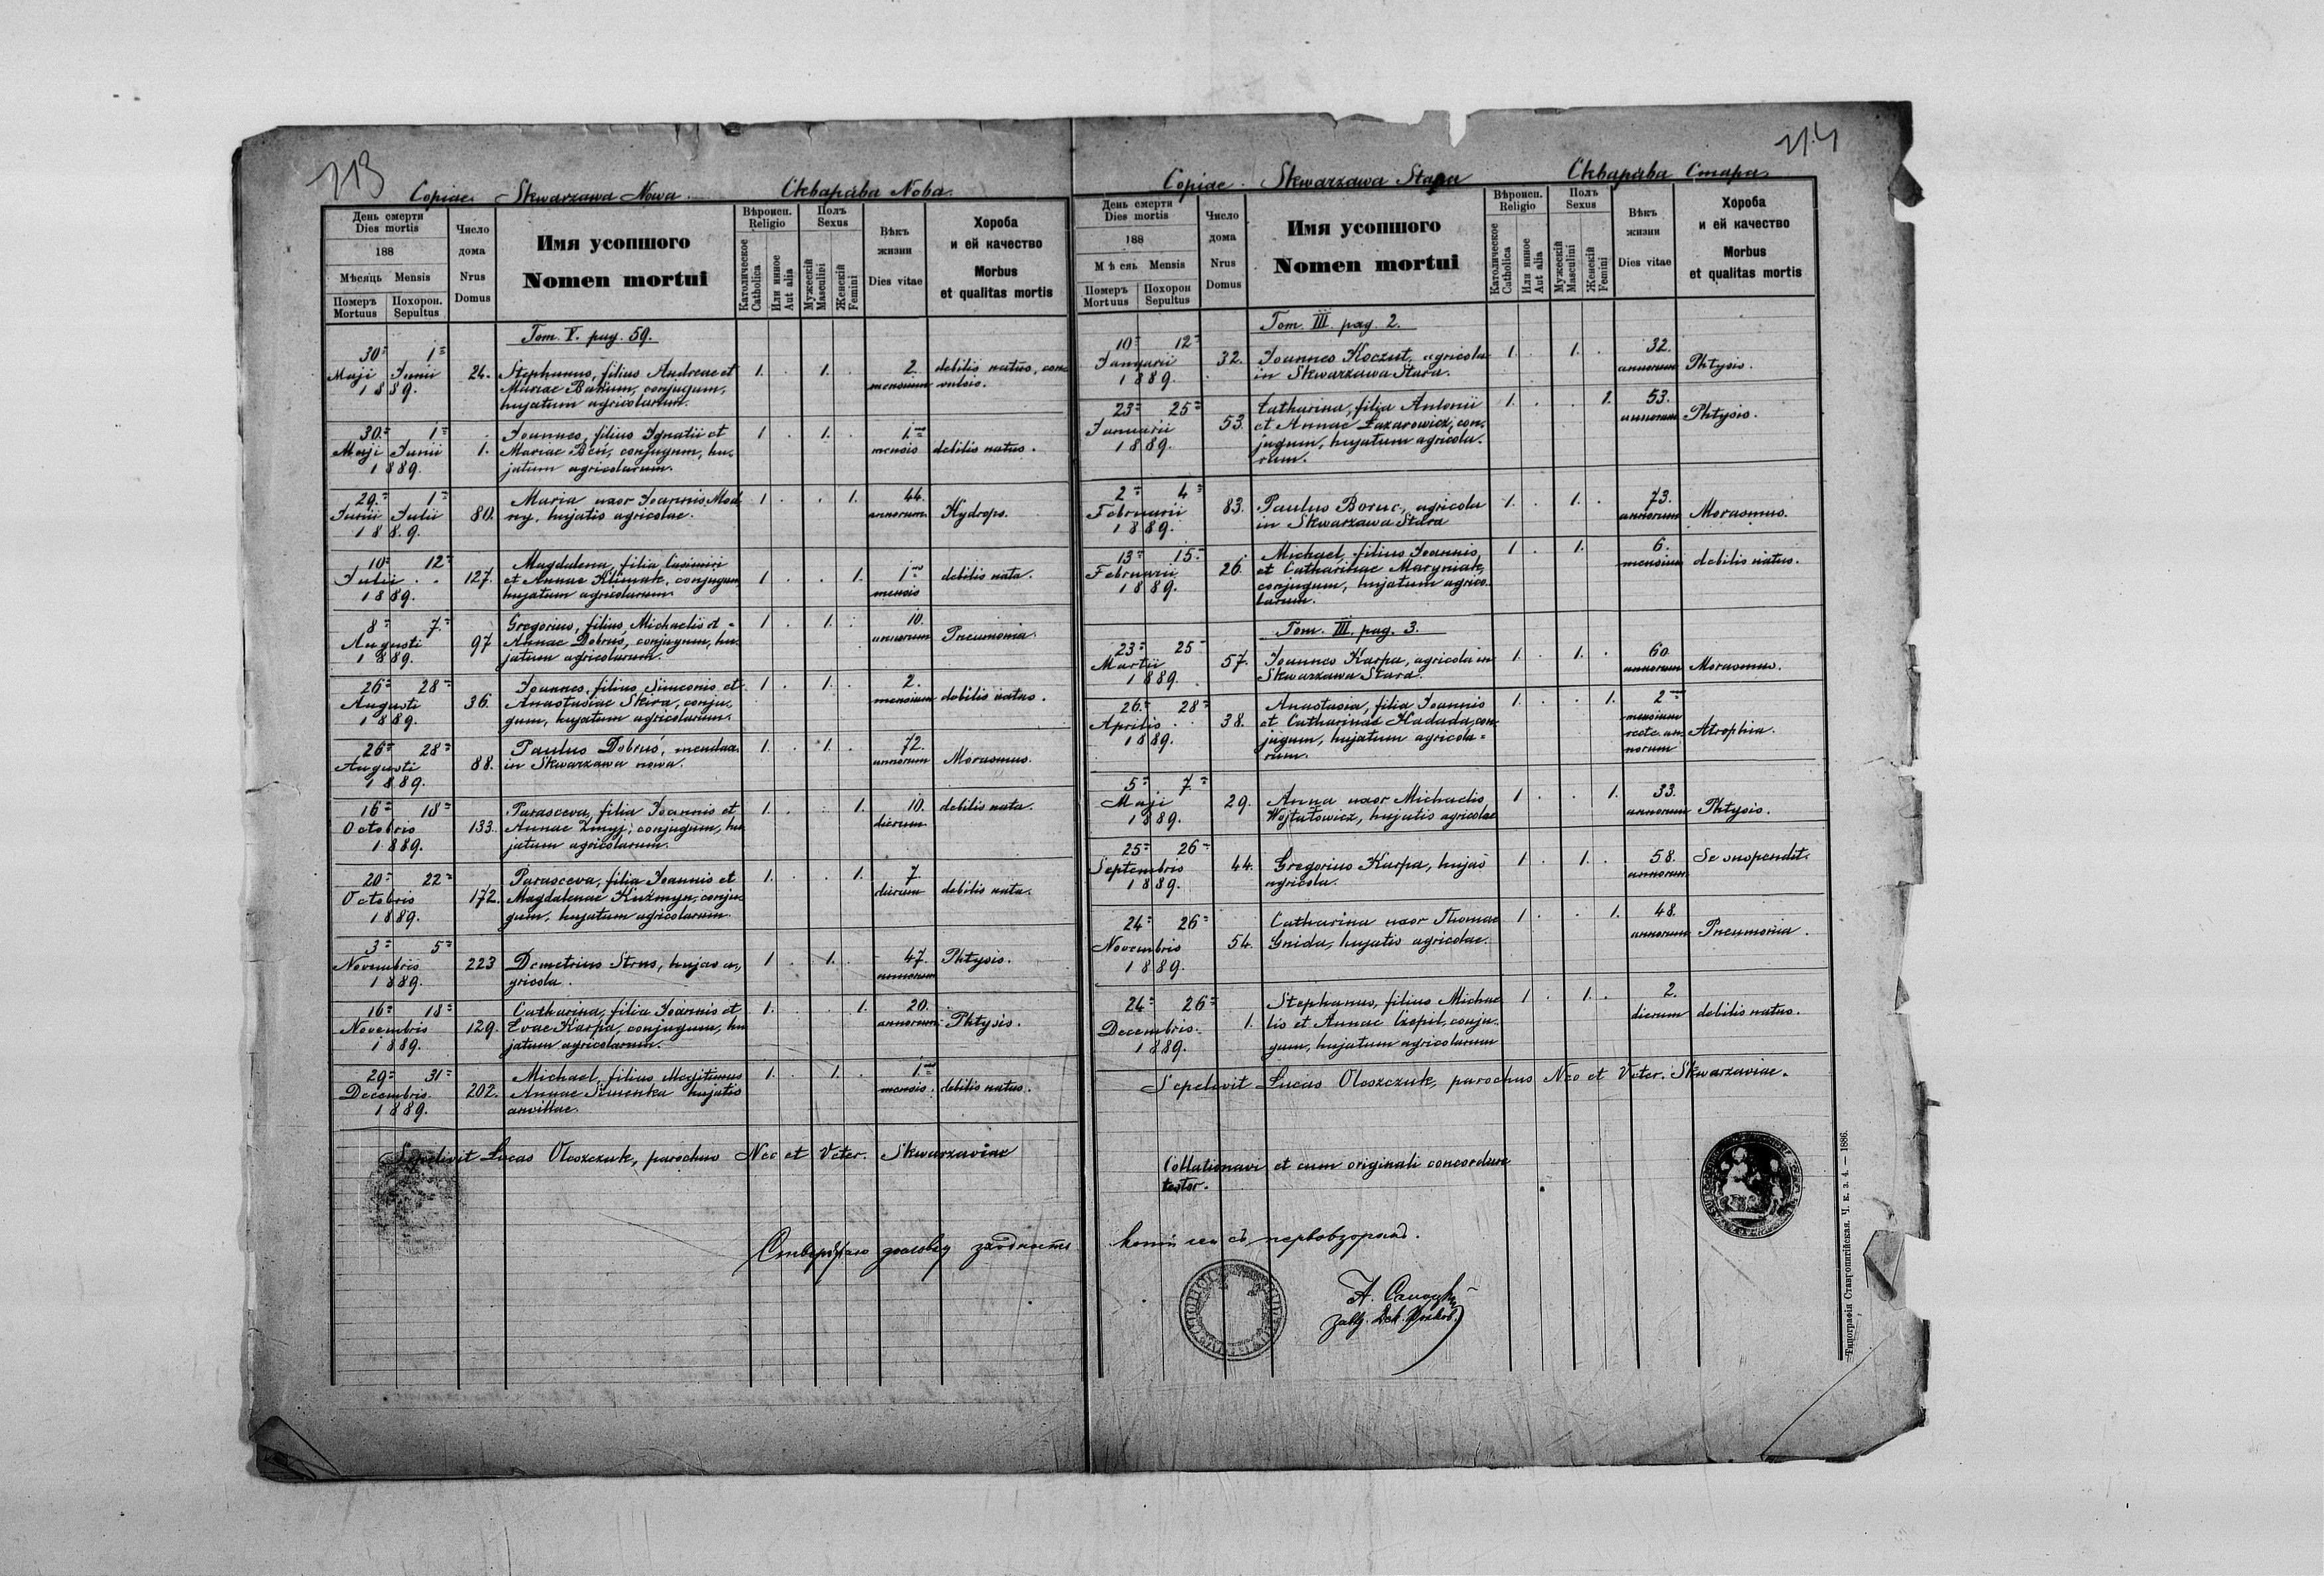 213
Copiae. Skwarzawa Nowa. Скварѣва Nова.
День смерти
Dies mortis
188
Мѣсяць Mensis
Померъ Mortuus
Похорон. Sepultus
Число дома
Nrus Domus
Имя усопшого
Nomen mortui
Вѣроисп.
Religio
Католическое Catholica
Или инное Aut alia
Полъ
Sexus
Мужескій Masculini
Женскій Femini
Вѣкъ жизни
Dies vitae
Хороба
и ей качество
Morbus
et qualitas mortis
Tom. V. pag. 59.
30 1
Maji Junii 24. Stephanus, filius Andreae et 1. . 1. . 2. debilis natus, con-
1889. Mariae Bakum, conjugum, mensium vulsio.
hujatum agricolarum.
30. 1
Maji Junii 1. Joannes, filius Ignatii et 1 . 1. . 1.
1889. Mariae Beń, conjugum, hu- mensis debilis natus.
jatum agricolarum.
29. 1
Junii Julii 80. Maria uxor Joannis Mod- 1 . . 1. 44.
1889. ny, hujatis agricolae. annorum Hydrops.
10 12
Julii 127. Magdalena, filia Casimiri 1 . . 1. 1 debilis nata.
1889. et Annae Klimak, conjugum mensis
hujatum agricolarum.
8 7.
Augusti 97 Gregorius, filius Michaelis et 1 . 1. . 10.
1889. Annae Dobruś, conjugum, hu- annorum Pneumonia.
jatum agricolarum.
26 28
Augusti 36. Joannes, filius Simeonis et 1 . 1. . 2.
1889. Anastasiae Skira, conju- mensium debilis natus.
gum, hujatum agricolarum.
26 28
Augusti 88. Paulus Dobruś, 1. . 1. . 72.
1889. in Skwarzawa nowa. annorum Marasmus.
16 18
Octobris 133. Parasceva, filia Joannis et 1. . . 1. 10. debilis nata.
1889. Annae Zmyj, conjugum, hu dierum
jatum agricolarum.
20 22
Octobris 172. Parasceva, filia Joannis et 1. . . 1. 7.
1889. Magdalenae Kuźmyn, conju- dierum debilis nata.
gum, hujatum agricolarum
3 5
Novembris 223 Demetrius Strus, hujas a- 1 . 1. . 47. Phtysis.
1889. gricola. annorum
16 18
Novembris 129. Catharina, filia Joannis et 1. . . 1. 20.
1889. Evae Karpa, conjugum, hu annorum Phtysis.
jatum agricolarum.
29 31
Decembris 202. Michael, filius illegitimus 1. . 1. . 1.
1889. Annae Simenka hujatis mensis. debilis natus.
ancillae.
Sepelivit Lucas Oleszczuk, parochus Neo et Veter. Skwarzaviae
214
Copiae. Skwarzawa Stara Скварѣва Стара.
День смерти
Dies mortis
188
М ѣ сяь Mensis
Померъ Mortuus
Похорон Sepultus
Число дома
Nrus Domus
Имя усопшого
Nomen mortui
Вѣроисп.
Religio
Католическое Catholica
Или инное Aut alia
Полъ
Sexus
Мужескій Masculini
Женскій Femini
Вѣкъ жизни
Dies vitae
Хороба
и ей качество
Morbus
et qualitas mortis
Tom. III. pag. 2.
10 12
Januarii 32. Joannes Koczut, agricola 1. . 1. . 32.
1889. in Skwarzawa Stara. annorum Phtysis.
23 25
Januarii 53. Catharina, filia Antonii 1. . . 1. 53.
1889. et Annae Łazarowicz, con- annorum Phtysis.
jugum, hujatum agricola-
rum.
2 4
Februarii 83. Paulus Boruc, agricola 1. . 1. . 73.
1889. in Skwarzawa Stara annorum Marasmus.
13 15
Februarii 26. Michael, filius Joannis 1 . 1. 6.
1889. et Catharinae Maryniak, mensium debilis natus.
conjugum, hujatum agrico-
larum.
Tom. III. pag. 3.
23 25
Martii 57. Joannes Karpa, agricola in 1. . 1. . 60
1889. Skwarzawa Stara. annorum Marasmus.
26. 28
Aprilis 38. Anastasia, filia Joannis 1. . . 1. 2
1889. et Catharinae Hadada, con- mensium
jugum, hujatum agricola- recte an- Atrophia.
rum. norum
5 7
Maji 29. Anna uxor Michaelis 1 . . 1. 33.
1889. Wojtułowicz, hujatis agricolae annorum Phtysis.
25 26
Septembris 44. Gregorius Karpa, hujas 1 . 1. . 58. Se suspendit.
1889. agricola. annorum
24 26
Novembris 54. Catharina uxor Thomae 1 . . 1. 48.
1889. Gnida, hujatis agricolae. annorum Pneumonia.
24 26
Decembris. 1. Stephanus, filius Michae- 1 . 1. . 2.
1889. lis et Annae Czopil, conju- dierum debilis natus.
gum, hujatum agricolarum
Sepelivit Lucas Oleszczuk, parochus Neo et Veter. Skwarzaviae.
Collationavi et cum originali concordare
testor.
Типографія Ставропигійская. Ч. к. з. 4. — 1886.